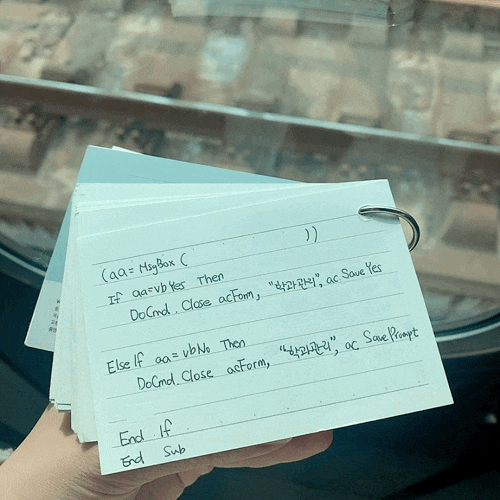 (aa = MsgBox (                    ))
If aa=vbYes Then
DoCmd.Close acForm, "학과관리", ac SaveYes
Else If aa = vbNo Then
DoCmd.Close acForm, "학과관리", ac SavePrompt
End If
End Sub